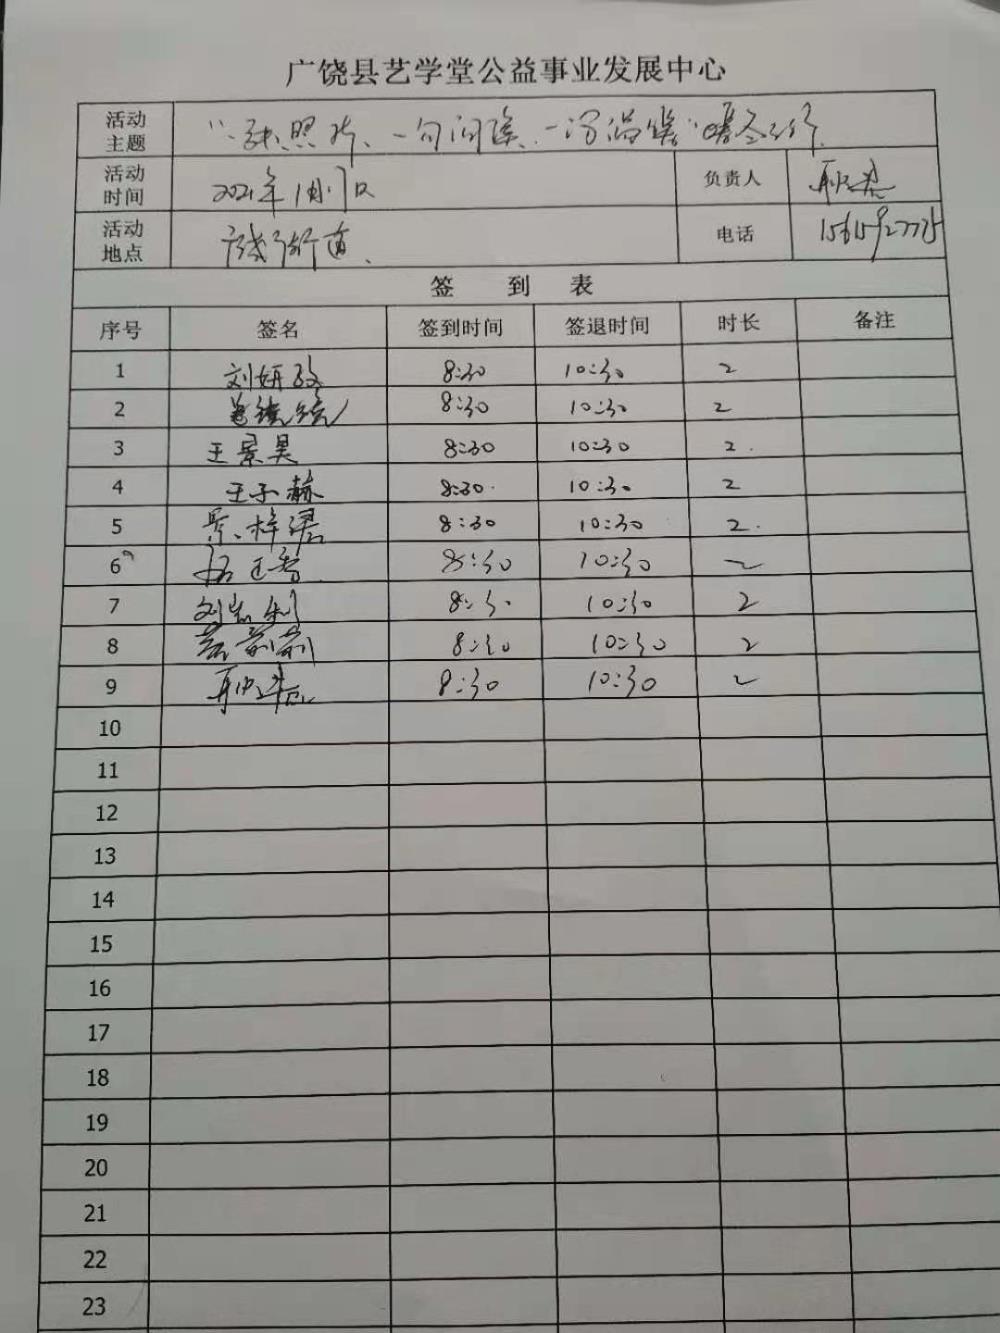 广饶县艺学堂公益事业发展中心
活动主题 "一张照片、一句问候、一份温馨"暖冬之行
活动时间 2021年1月17日 负责人
活动地点 街道 电话 15615927775
签 到 表
序号 签名 签到时间 签退时间 时长 备注
1 刘妍 8:30 10:30 2
2 8:30 10:30 2
3 王景昊 8:30 10:30 2
4 王子赫 8:30 10:30 2
5 景梓珺 8:30 10:30 2
6 8:30 10:30 2
7 刘 8:30 10:30 2
8 8:30 10:30 2
9 8:30 10:30 2
10
11
12
13
14
15
16
17
18
19
20
21
22
23